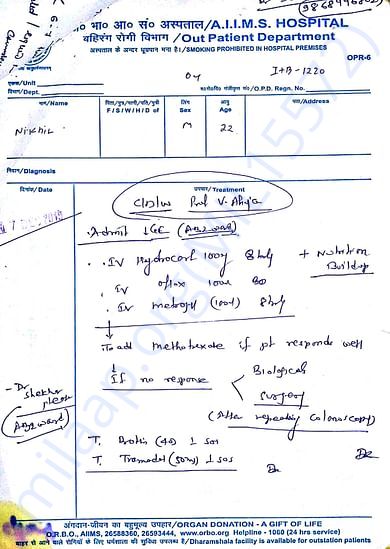 भा० आ० सं० अस्पताल/A.I.I.M.S. HOSPITAL
बहिरंग रोगी विभाग/Out Patient Department
अस्पताल के अन्दर धूम्रपान मना है।/SMOKING PROHIBITED IN HOSPITAL PREMISES
OPR-6
I+B-1220
एकक/Unit
विभाग/Dept.
O.P.D. Regn. No.
नाम/Name
F/S/W/H/D of
लिंग Sex
आयु Age
पता/Address
Nikhil
M
22
निदान/Diagnosis
दिनांक/Date
उपचार/Treatment
C/D/W Prof V. Ahuja
Admit (AB2 ward)
IV Hydrocort 100mg 8hrly + Nutrition Buildup
IV oflox BD
IV metrogyl (100) 8hrly
To add methotrexate if pt responds well
If no response
Biological
Surgery
(After repeating colonoscopy)
Dr Shekhar please
(AB2 ward)
T. (40) 1 sos
T. Tramadol (50mg) 1 sos
अंगदान-जीवन का बहुमूल्य उपहार/ORGAN DONATION - A GIFT OF LIFE
O.R.B.O., AIIMS, 26588360, 26593444, www.orbo.org Helpline - 1060 (24 hrs service)
बाहर से आने वाले रोगियों के लिए धर्मशाला की सुविधा उपलब्ध है/Dharamshala facility is available for outstation patients
milaap.org